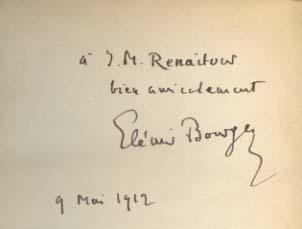 à J. M. Renaitour
bien amicalement
Elémir Bourges
9 Mai 1912